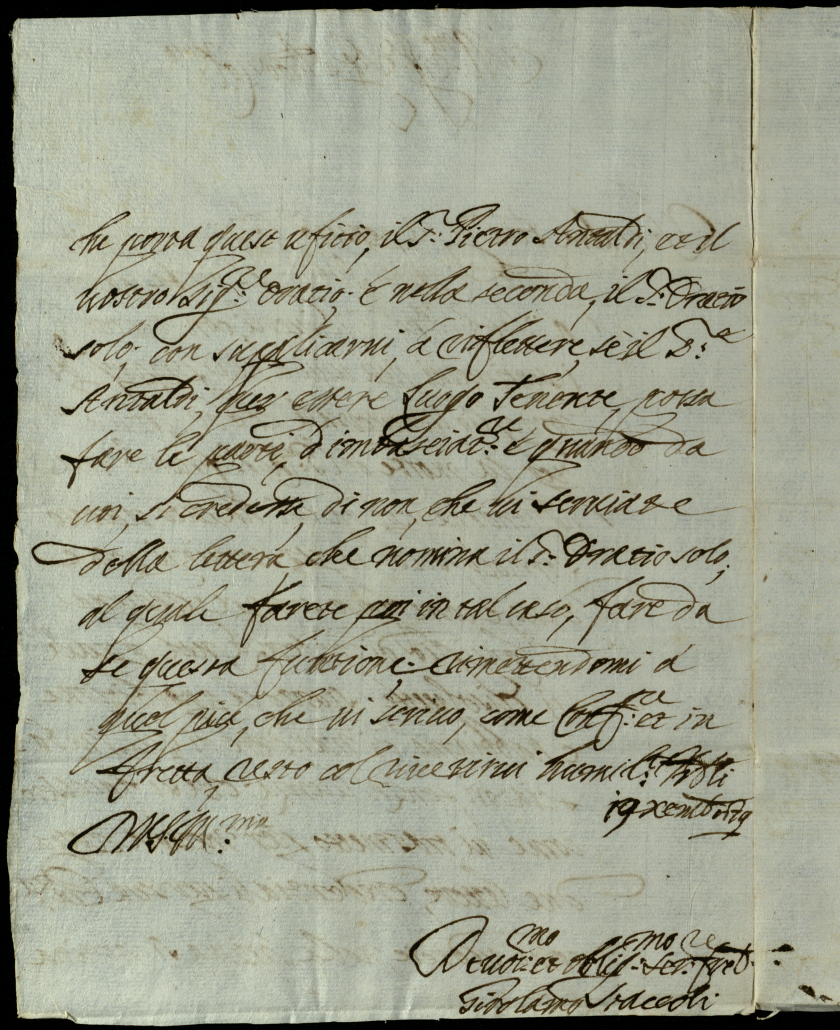 che porta questo uficio, il S.r Pietro Antaldi, et il
nostro Sig.re Oratio. E nella seconda, il S.r Oratio
solo. con supplicarui, à riflettere, se il S.re
Antaldi, per essere Luogo Tenente, possa
fare le parti, d'imbasciat.re E quando da
uoi, si credesse, di non, che ui seruiate
della lettera che nomina il S.r Oratio solo,
al quale farete poi in tal caso, fare da
se questa funtione. rimettendomi à
quel più, che ui scriuo, come et in
fretta, resto col riuerirui humil.te
19 Xembre
V.S. Ill.ma
Deuot.mo et oblig.mo Ser.re
Girolamo Staccoli